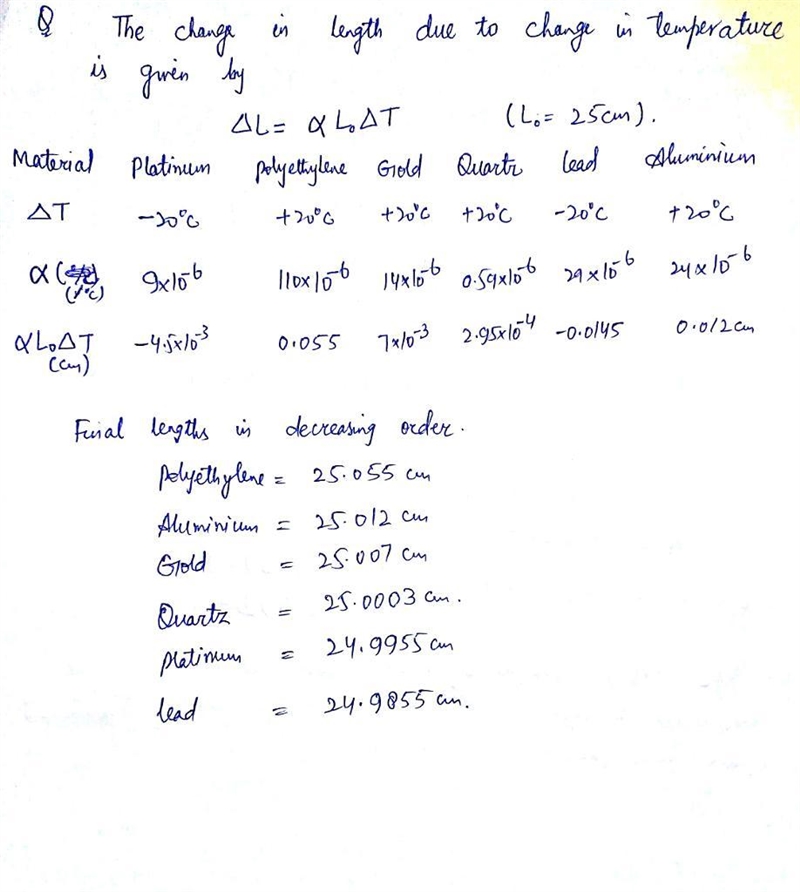 Q The change in length due to change in temperature
is given by
ΔL = αL₀ΔT (L₀ = 25cm).
Material Platinum polyethylene Gold Quartz lead Aluminium
ΔT -20°C +20°C +20°C +20°C -20°C +20°C
α (1/°C) 9x10⁻⁶ 110x10⁻⁶ 14x10⁻⁶ 0.59x10⁻⁶ 29x10⁻⁶ 24x10⁻⁶
αL₀ΔT (cm) -4.5x10⁻³ 0.055 7x10⁻³ 2.95x10⁻⁴ -0.0145 0.012cm
Final lengths in decreasing order.
polyethylene = 25.055 cm
Aluminium = 25.012 cm
Gold = 25.007 cm
Quartz = 25.0003 cm.
platinum = 24.9955 cm
lead = 24.9855 cm.